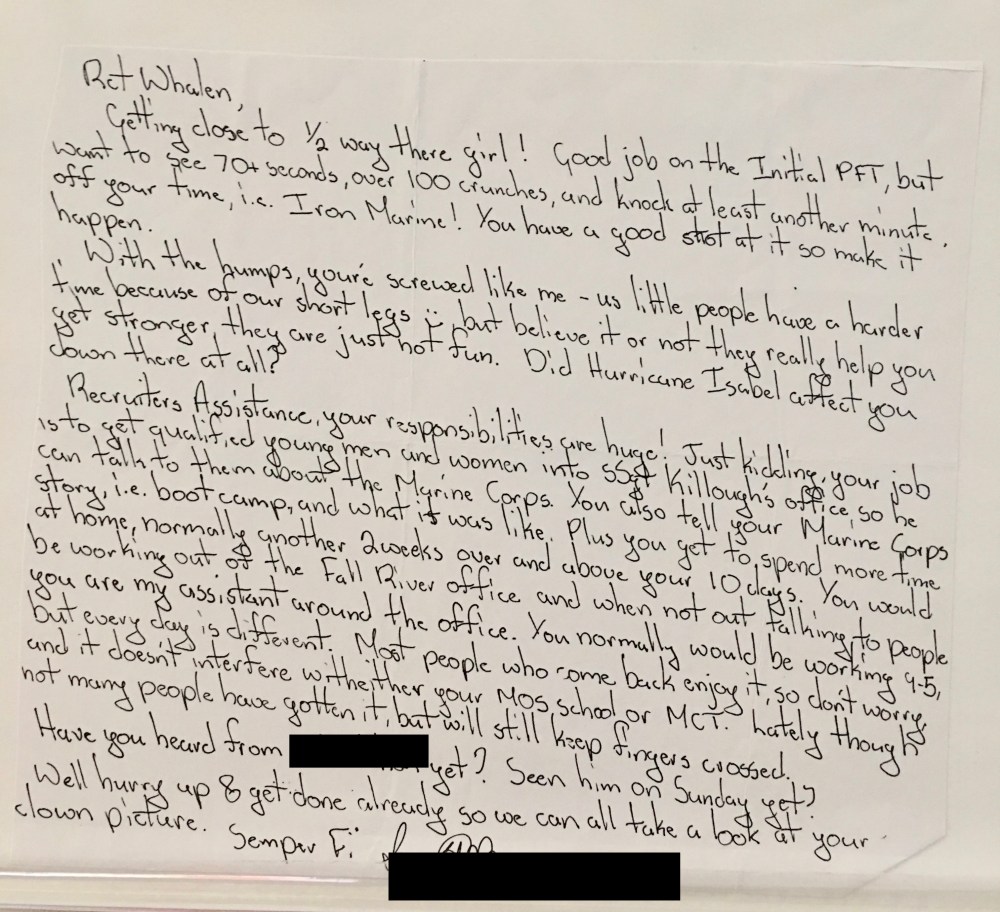 Rct Whalen,
Getting close to 1/2 way there girl! Good job on the Initial PFT, but
want to see 70+ seconds, over 100 crunches, and knock at least another minute
off your time, i.e. Iron Marine! You have a good shot at it so make it
happen.
With the humps, you're screwed like me - us little people have a harder
time because of our short legs :( but believe it or not they really help you
get stronger, they are just not fun. Did Hurricane Isabel affect you
down there at all?
Recruiters Assistance, your responsibilities are huge! Just kidding, your job
is to get qualified young men and women into SSgt Killough's office, so he
can talk to them about the Marine Corps. You also tell your Marine Corps
story, i.e. boot camp, and what it was like. Plus you get to spend more time
at home, normally another 2 weeks over and above your 10 days. You would
be working out of the Fall River office and when not out talking to people
you are my assistant around the office. You normally would be working 9-5,
but every day is different. Most people who come back enjoy it, so don't worry,
and it doesn't interfere with either your MOS school or MCT. Lately though
not many people have gotten it, but will still keep fingers crossed.
Have you heard from yet? Seen him on Sunday yet?
Well hurry up & get done already so we can all take a look at your
clown picture. Semper Fi